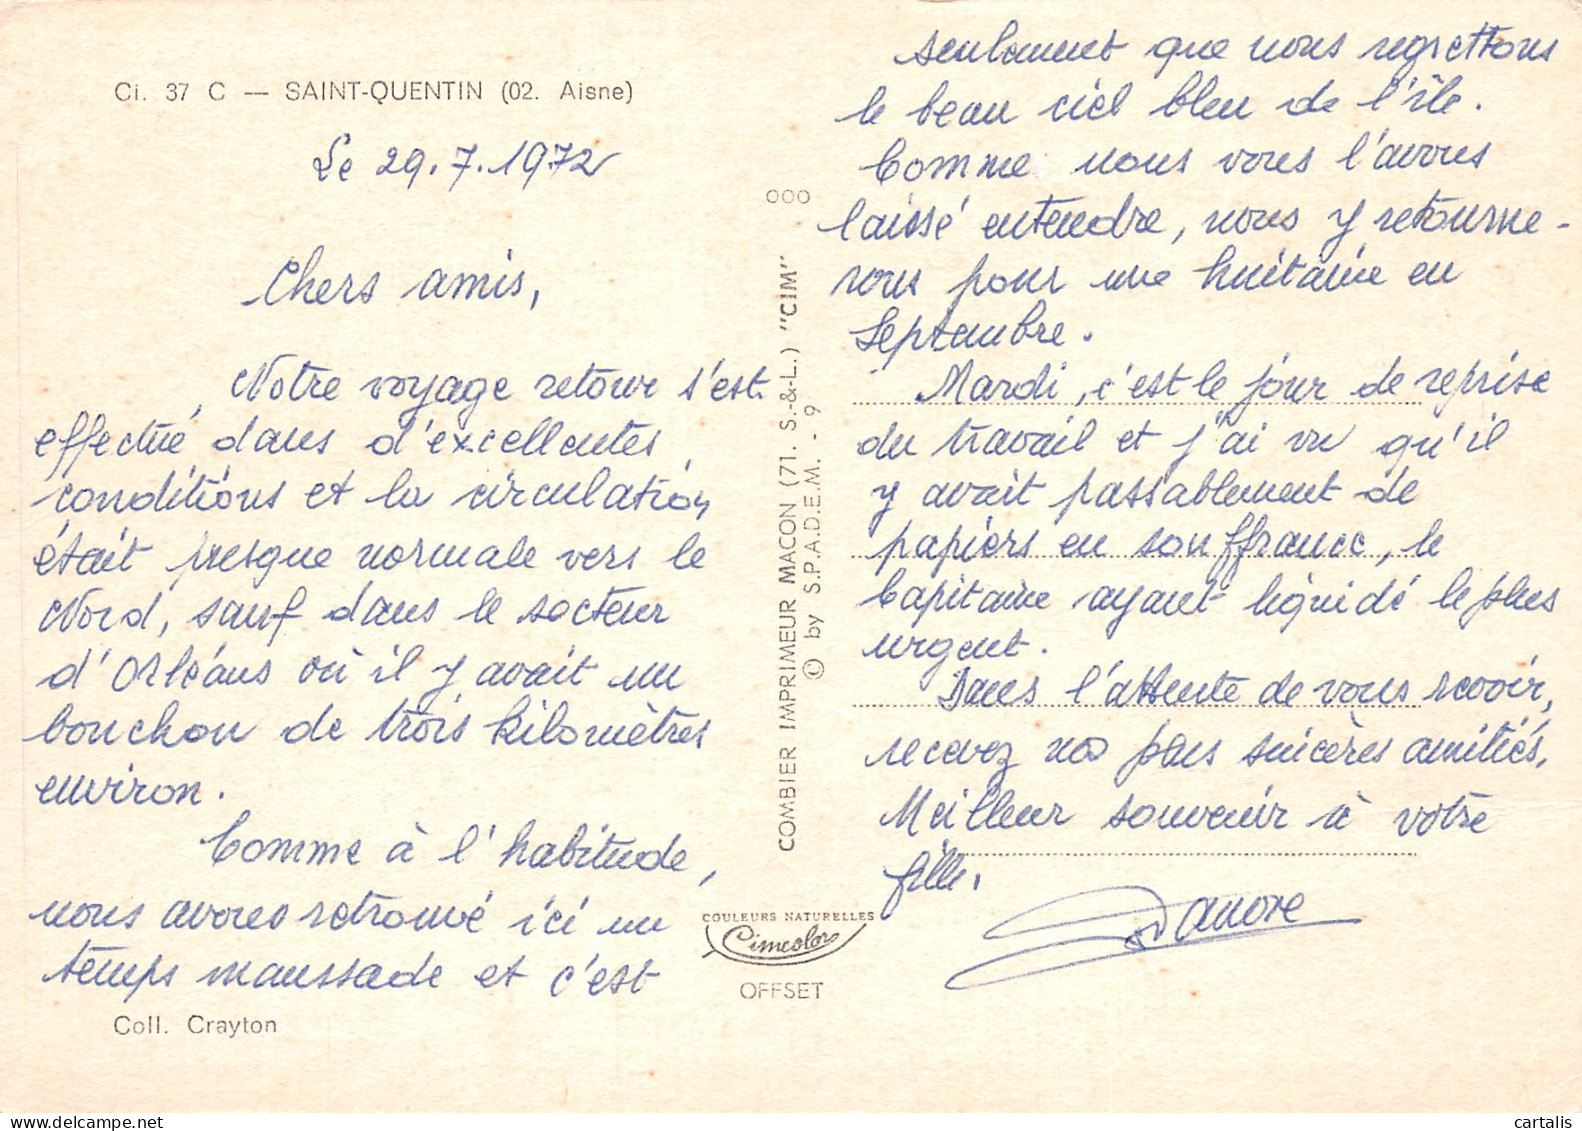 Ci. 37 C — SAINT-QUENTIN (02. Aisne)
Le 29.7.1972
Chers amis,
Notre voyage retour s'est
effectué dans d'excellentes
conditions et la circulation
était presque normale vers le
Nord, sauf dans le secteur
d'Orléans où il y avait un
bouchon de trois kilomètres
environ.
Comme à l'habitude,
nous avons retrouvé ici un
temps maussade et c'est
Coll. Crayton
OOO
COMBIER IMPRIMEUR MACON (71. S.-&-L.) "CIM"
© by S.P.A.D.E.M. - 9
COULEURS NATURELLES
Cimcolor
OFFSET
seulement que nous regrettons
le beau ciel bleu de l'île.
Comme nous vous l'avons
laissé entendre, nous y retourne-
rons pour une huitaine en
Septembre.
Mardi, c'est le jour de reprise
du travail et j'ai vu qu'il
y avait passablement de
papiers en souffrance, le
Capitaine ayant liquidé le plus
urgent.
Dans l'attente de vous revoir,
recevez nos plus sincères amitiés.
Meilleur souvenir à votre
fille.
cartalis